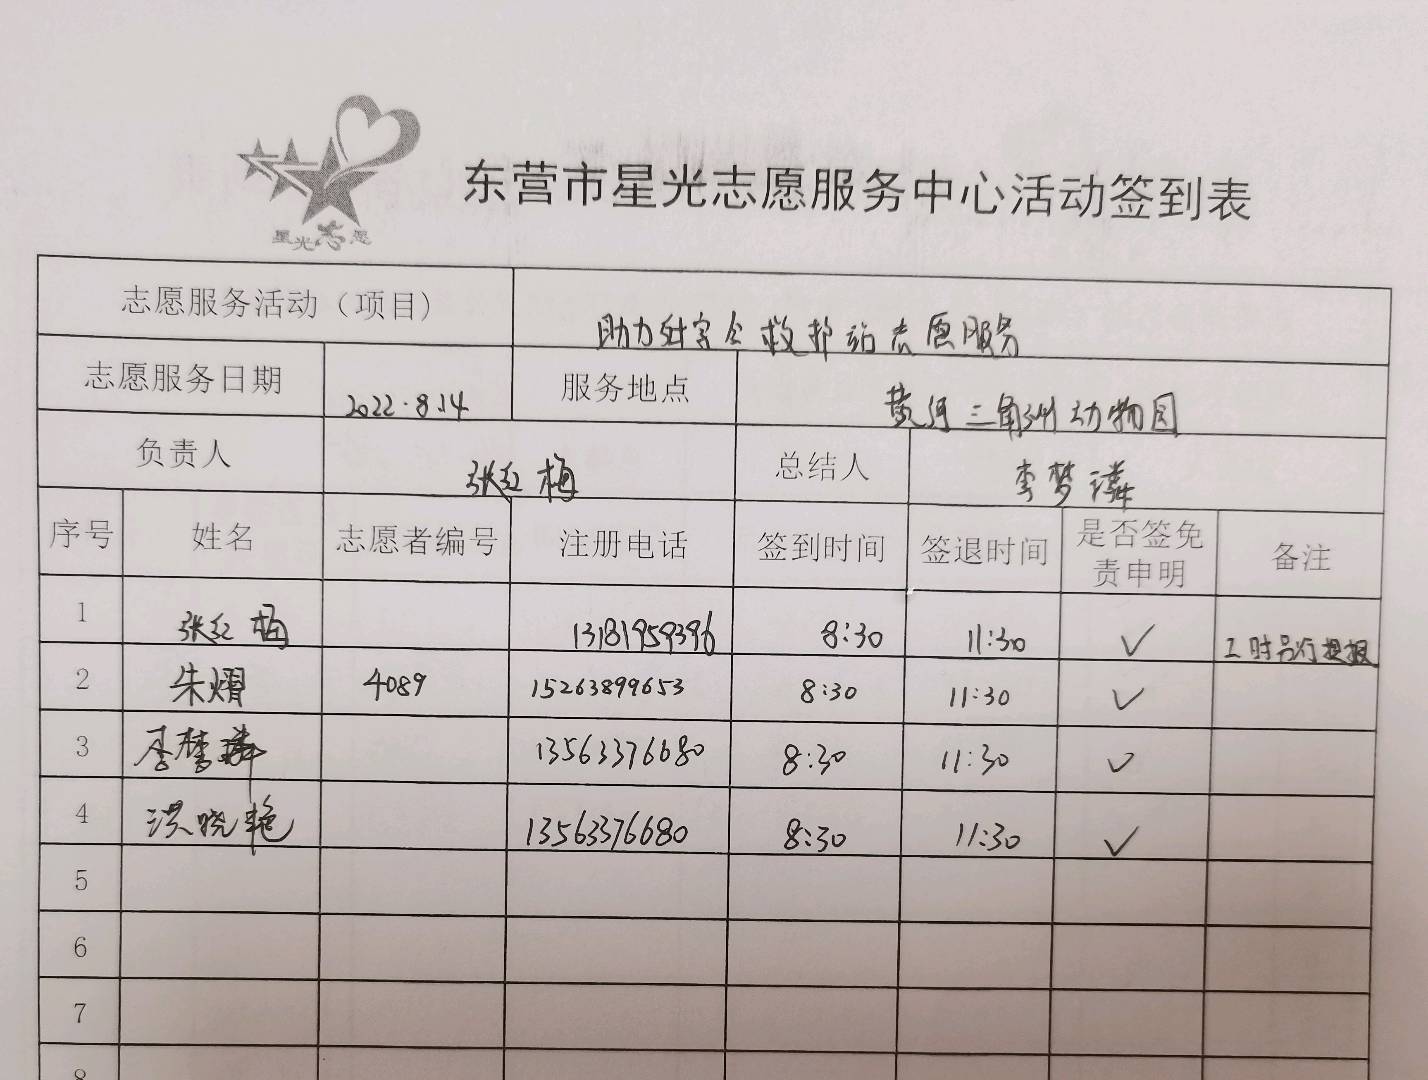 星光志愿
东营市星光志愿服务中心活动签到表
志愿服务活动（项目） 助力红字会救护站志愿服务
志愿服务日期 2022.8.14 服务地点 黄河三角洲动物园
负责人 张红梅 总结人 李梦
序号 姓名 志愿者编号 注册电话 签到时间 签退时间 是否签免责申明 备注
1 张红梅 13181959396 8:30 11:30 ✓ 工时另行提报
2 朱熠 4089 15263899653 8:30 11:30 ✓
3 李梦 13563376680 8:30 11:30 ✓
4 洪晓艳 13563376680 8:30 11:30 ✓
5
6
7
8